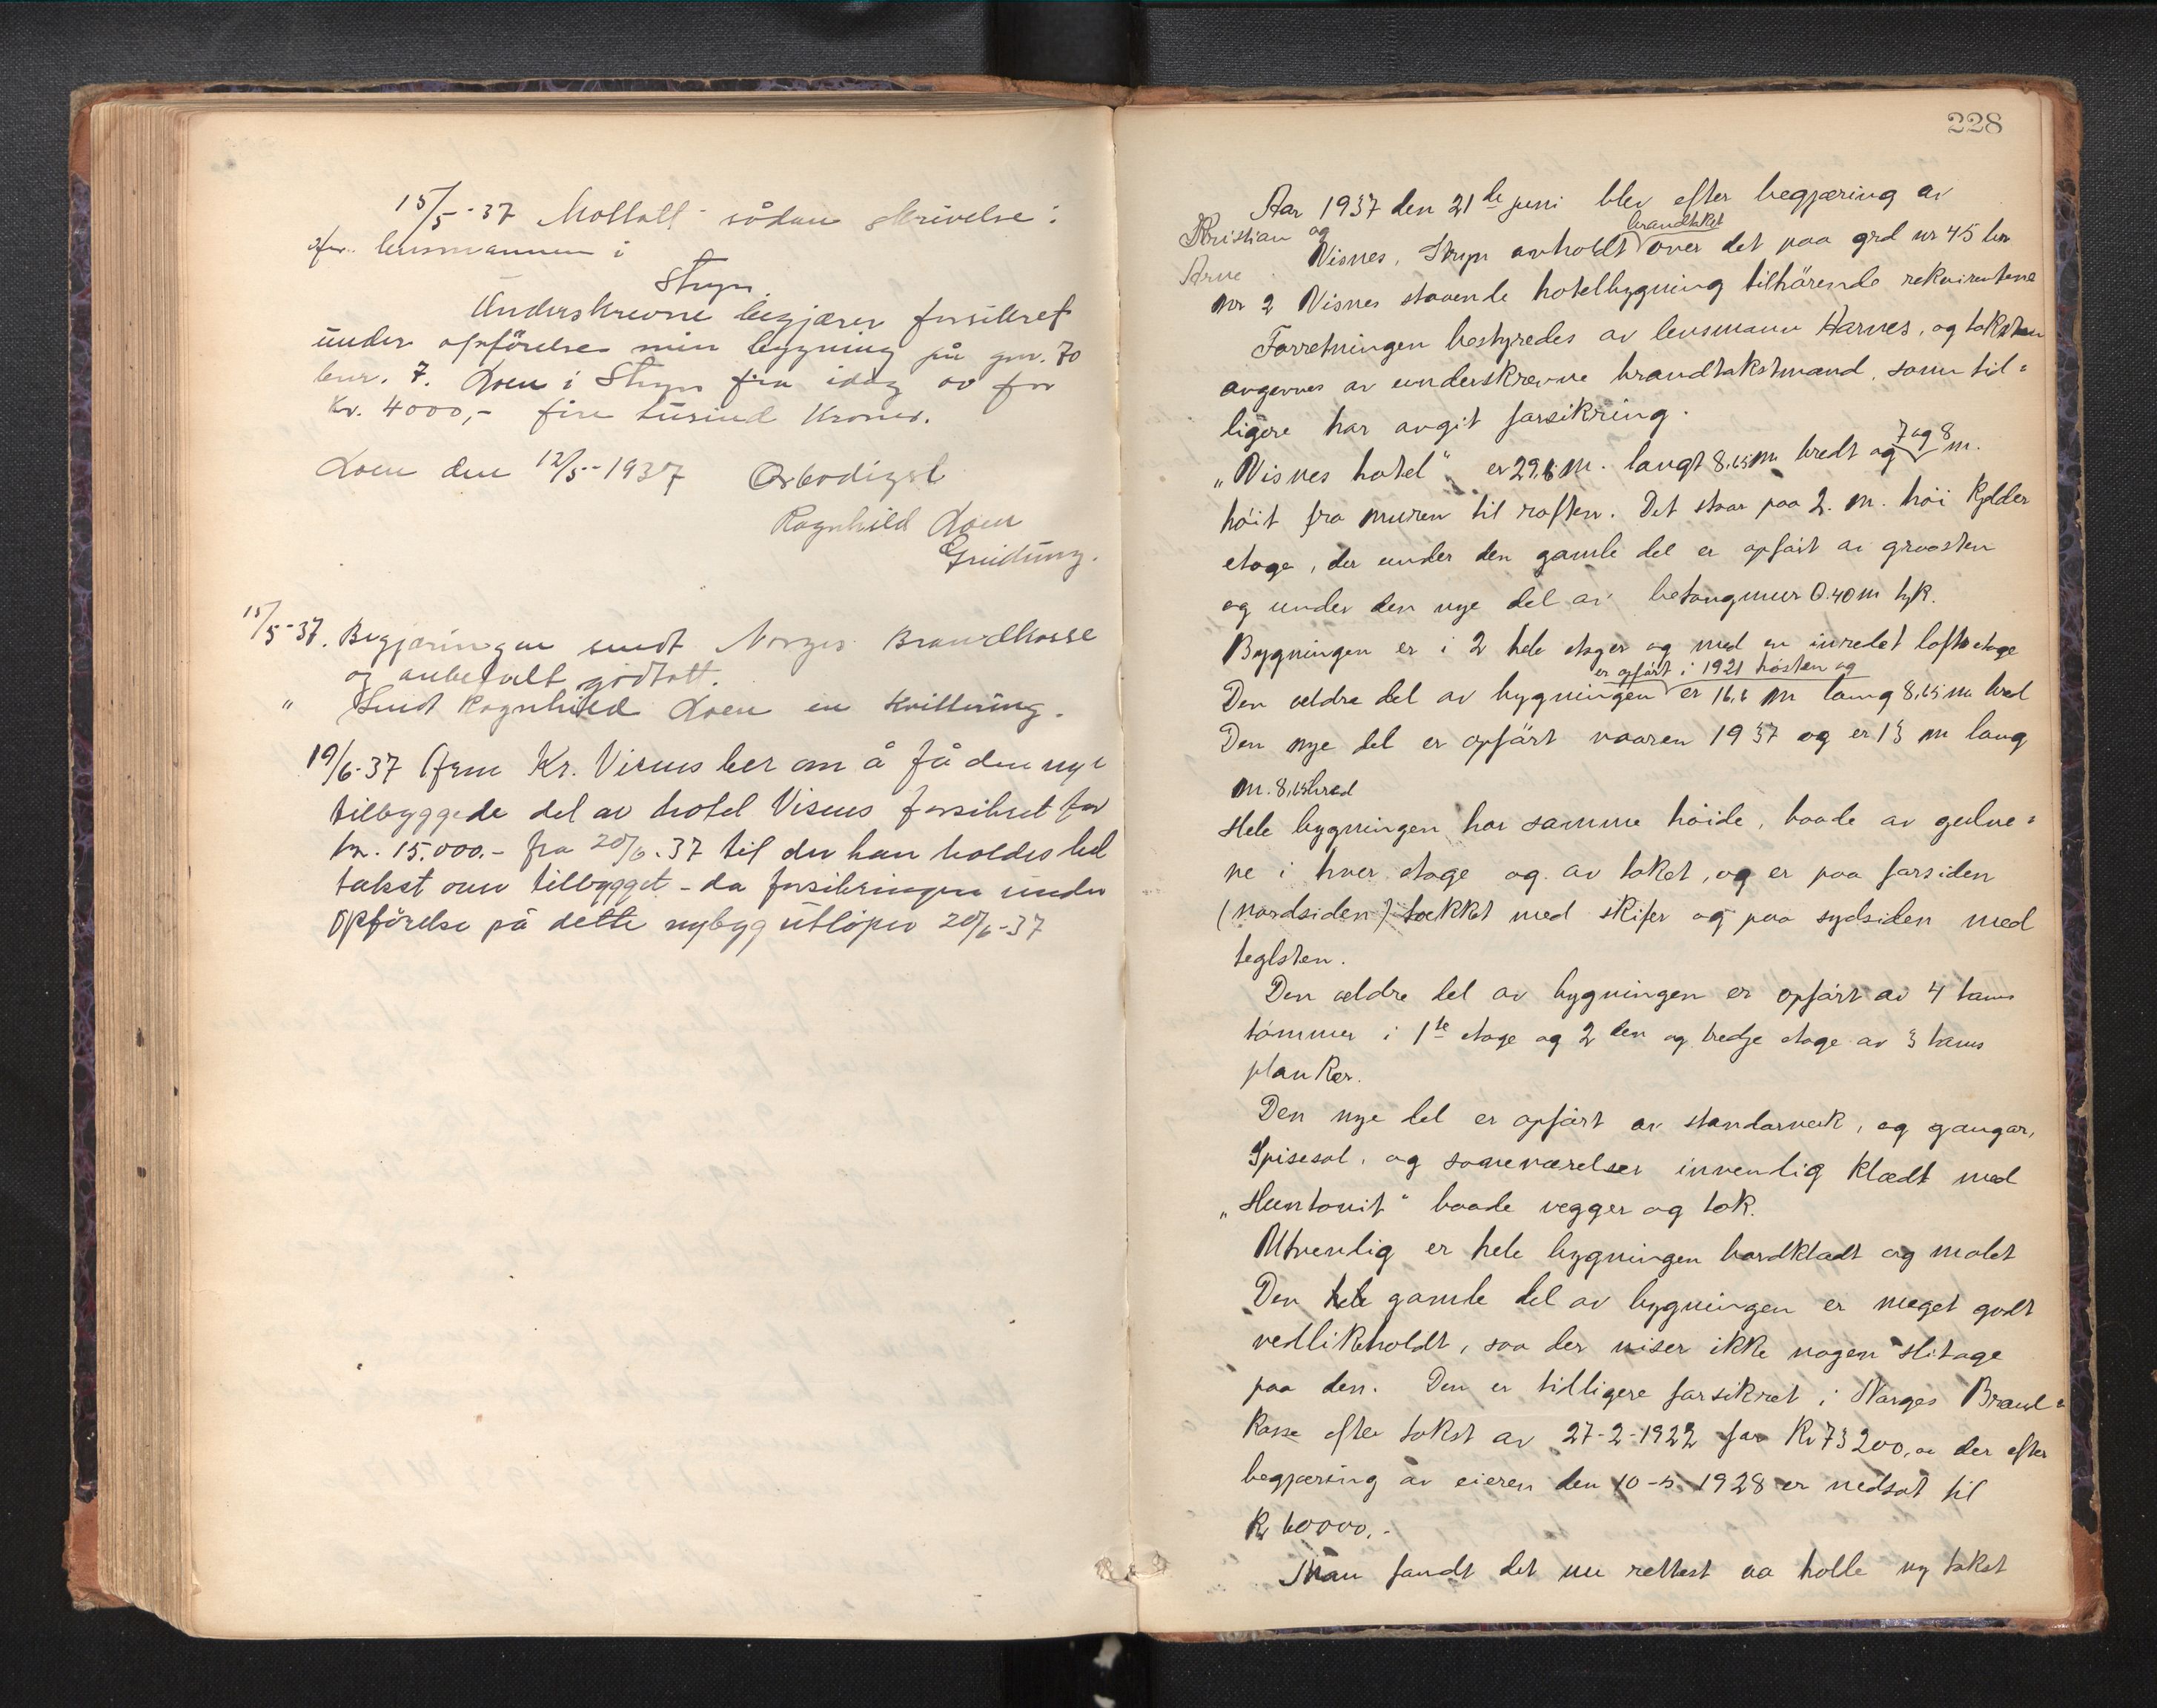 15/5-37 Mottatt sådan skrivelse:
lensmannen i
Stryn.
Underskrevne begjærer forsikret
under opförelse min bygning på gnr. 70
bnr. 7. Loen i Stryn fra idag av for
kr. 4000,- fire tusind kroner.
Loen den 12/5-1937 Ærbødigst
Ragnhild Loen
Greidung.
15/5-37. Begjæringen sendt Norges Brandkasse
og anbefalt godtatt.
" Sendt Ragnhild Loen en kvittering.
19/6-37 Arne Kr. Visnes ber om å få den nye
tilbyggede del av hotel Visnes forsikret for
kr. 15.000.- fra 20/6.37 til der kan holdes
takst over tilbygget - da forsikringen under
opförelse på dette nybygg utløper 20/6-37
228
Aar 1937 den 21de juni blev efter begjæring av
Kristian og
Arne
brandtakst
Visnes, Stryn avholdt over det paa grd nr 45 br
nr 2 Visnes staaende hotelbygning tilhörende rekvirentene
Forretningen bestyredes av lensmann Harnes, og taksten
avgævnes av underskrevne brandtakstmænd, som til=
ligere har avgit forsikring.
7 og 8
„Visnes hotel" er 29,6 m. langt 8,65 m bredt og m.
høit fra muren til røften. Det staar paa 2. m. höi kjelder
etage, der under den gamle del er opført av graasten
og under den nye del av betongmur 0.40 m tyk.
Bygningen er i 2 hele etager og med en inredet loftsetage
er opført i 1921 høsten og
Den ældre del av bygningen er 16,6 m lang 8,65 m bred
Den nye del er opfört vaaren 1937 og er 13 m lang
m. 8,65 bred
Hele bygningen har samme höide, baade av gulve=
ne i hver etage og av taket, og er paa forsiden
(nordsiden) tækket med skifer og paa sydsiden med
teglsten.
Den ældre del av bygningen er opført av 4 toms
tømmer i 1te etage og 2den og tredje etage av 3 toms
planker.
Den nye del er opført av standarværk, og gangar,
Spisesal, og soveværelser invendig klædt med
„Huntonit" baade vegger og tak.
Utvendig er hele bygningen bordklædt og malet
Den hele gamle del av bygningen er meget godt
vedlikeholdt, saa der viser ikke nogen slitage
paa den. Den er tilligere forsikret i Norges Brand=
kasse efter takst av 27-2-1922 for Kr 73200, der efter
begjæring av eieren den 10-5-1928 er nedsat til
Kr 60000.-
Man fandt det nu rettest aa holde ny takst